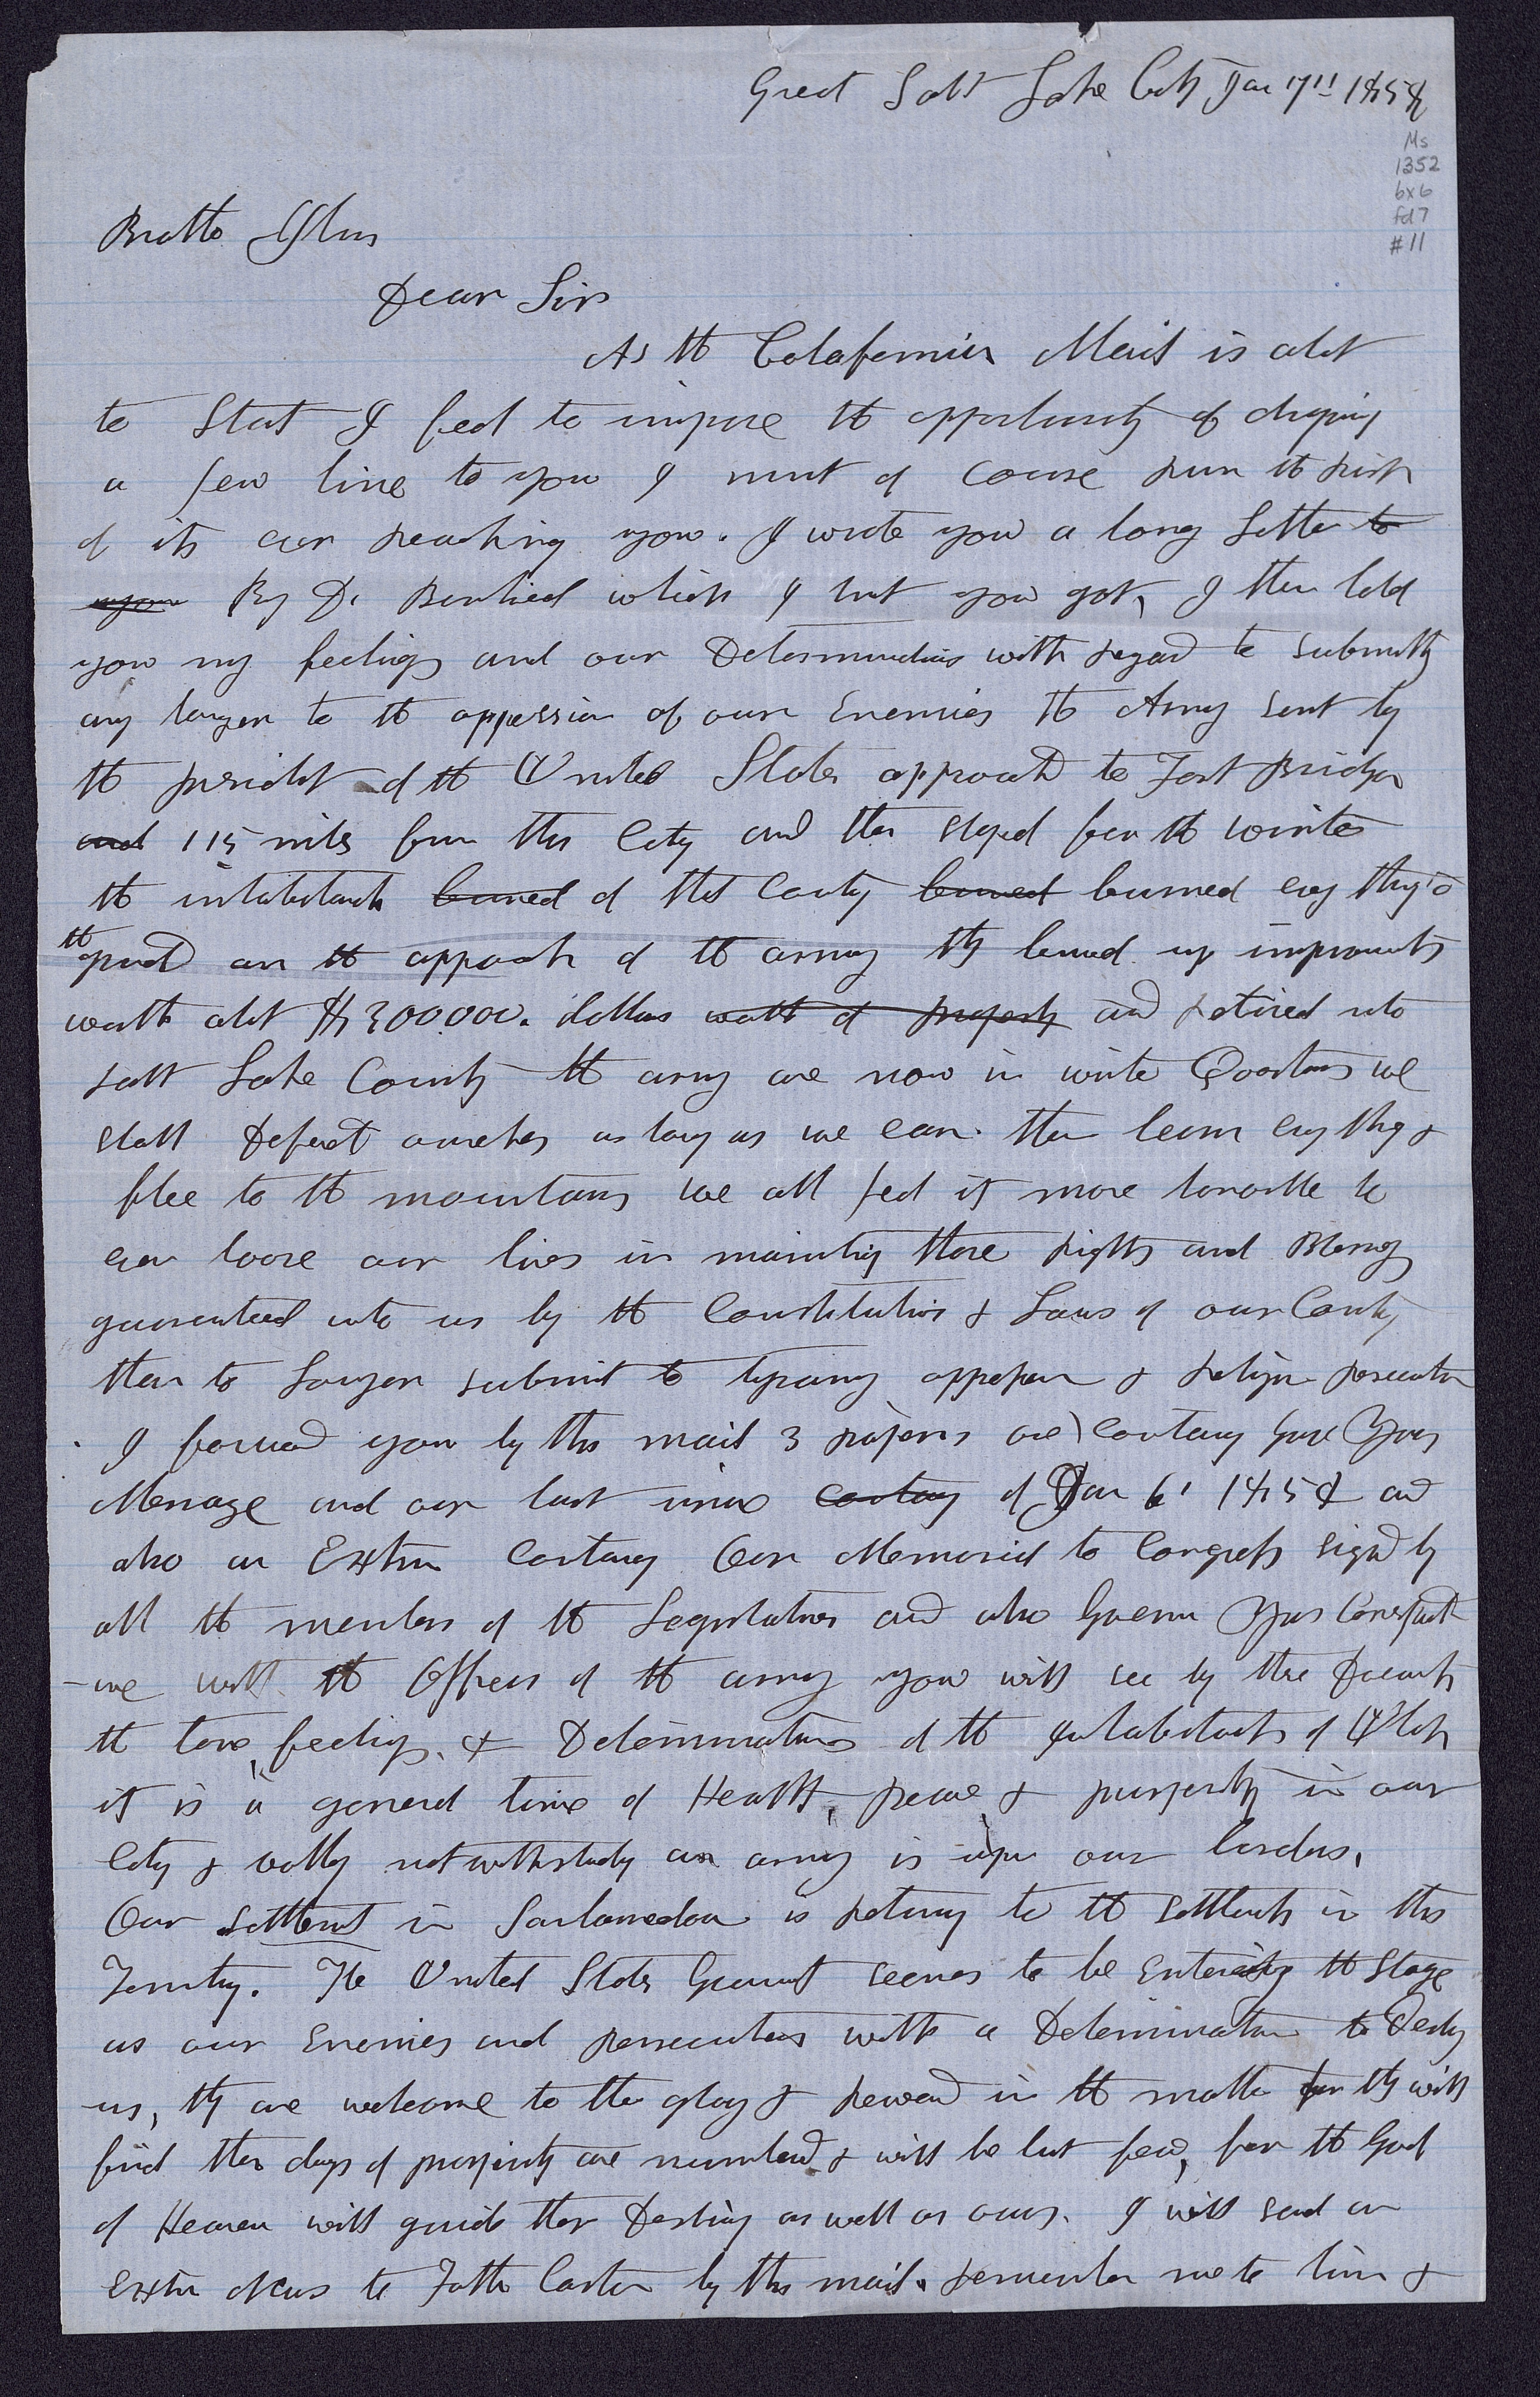 Great Salt Lake City Jan 7th 1858
Ms
1352
bx 6
fd 7
#11
Brother Ilus
Dear Sir
As the Calafornia Mail is about
to Start I feel to improve the opportunity of droping
a few line to you I must of course run the risk
of its ever reaching you. I wrote you a long Letter to
you By Dr Bernhisel which I trust you got, I then told
you my feelings and our Determinations with regard to submitting
any longer to the oppression of our Enemies the Army sent by
the president of the United States approachd to Fort Bridger
and 115 miles from this City and then stoped for the winter
the inhabitants burned of that County burned burned every thing
the ground on the approach of the army they burned up improvments
worth about $300000. dollars worth of property and retired into
Salt Lake County the army are now in winter Quarters we
shall Defend ourselves as long as we can then burn evry thing &
flee to the mountains we all feel it more honorable to
even loose our lives in maintaing those rights and Blessings
guaranteed unto us by the Constitution & Laws of our Country
than to Longer submit to tyranny oppression & religious persecution
I forward you by this mail 3 papers one containg Gov Youngs
Message and our last issue containg of Jan 6th 1858 and
also an Extra Containg Our Memorial to Congress signed by
all the members of the Legislature and also Governor Youngs Correspondance
with the Officers of the army you will see by these Documents
the tone, feelings, & Determinations of the inhabitants of Utah
it is a general time of Health, peace, & prosperity in our
City & valley notwithstanding an army is upon our borders.
Our settlement in Sanbarnedeno is returning to the settlements in this
Territory. The United States Government seems to be Entering the Stage
as our Enemies and persecutors with a Determination to Destroy
us, they are welcome to the glory & reward in the matter for they will
find their days of prosperity are numbered & will be but few, for the God
of Heaven will guide their Destiny as well as ours. I will send an
Extra News to Father Carter by this mail. remember me to him &